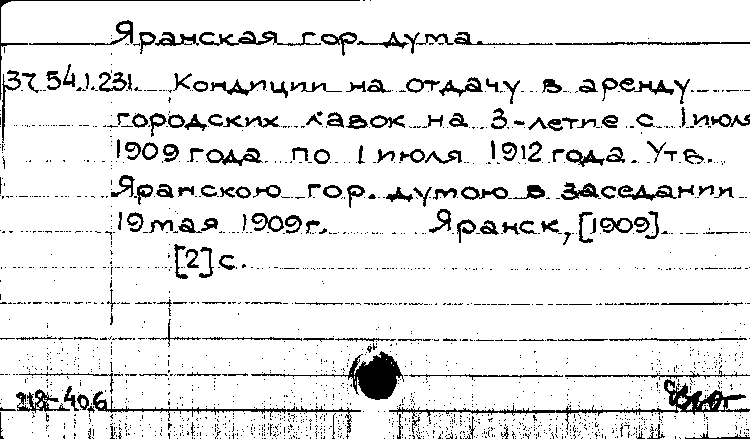 Яранская гор. дума.
37 54.1.231. Кондиции на отдачу в аренду
городских лавок на 3-летие с 1 июля
1909 года по 1 июля 1912 года. Утв.
Яранскою гор. думою в заседании
19 мая 1909 г. Яранск, [1909].
[2] с.
218-406